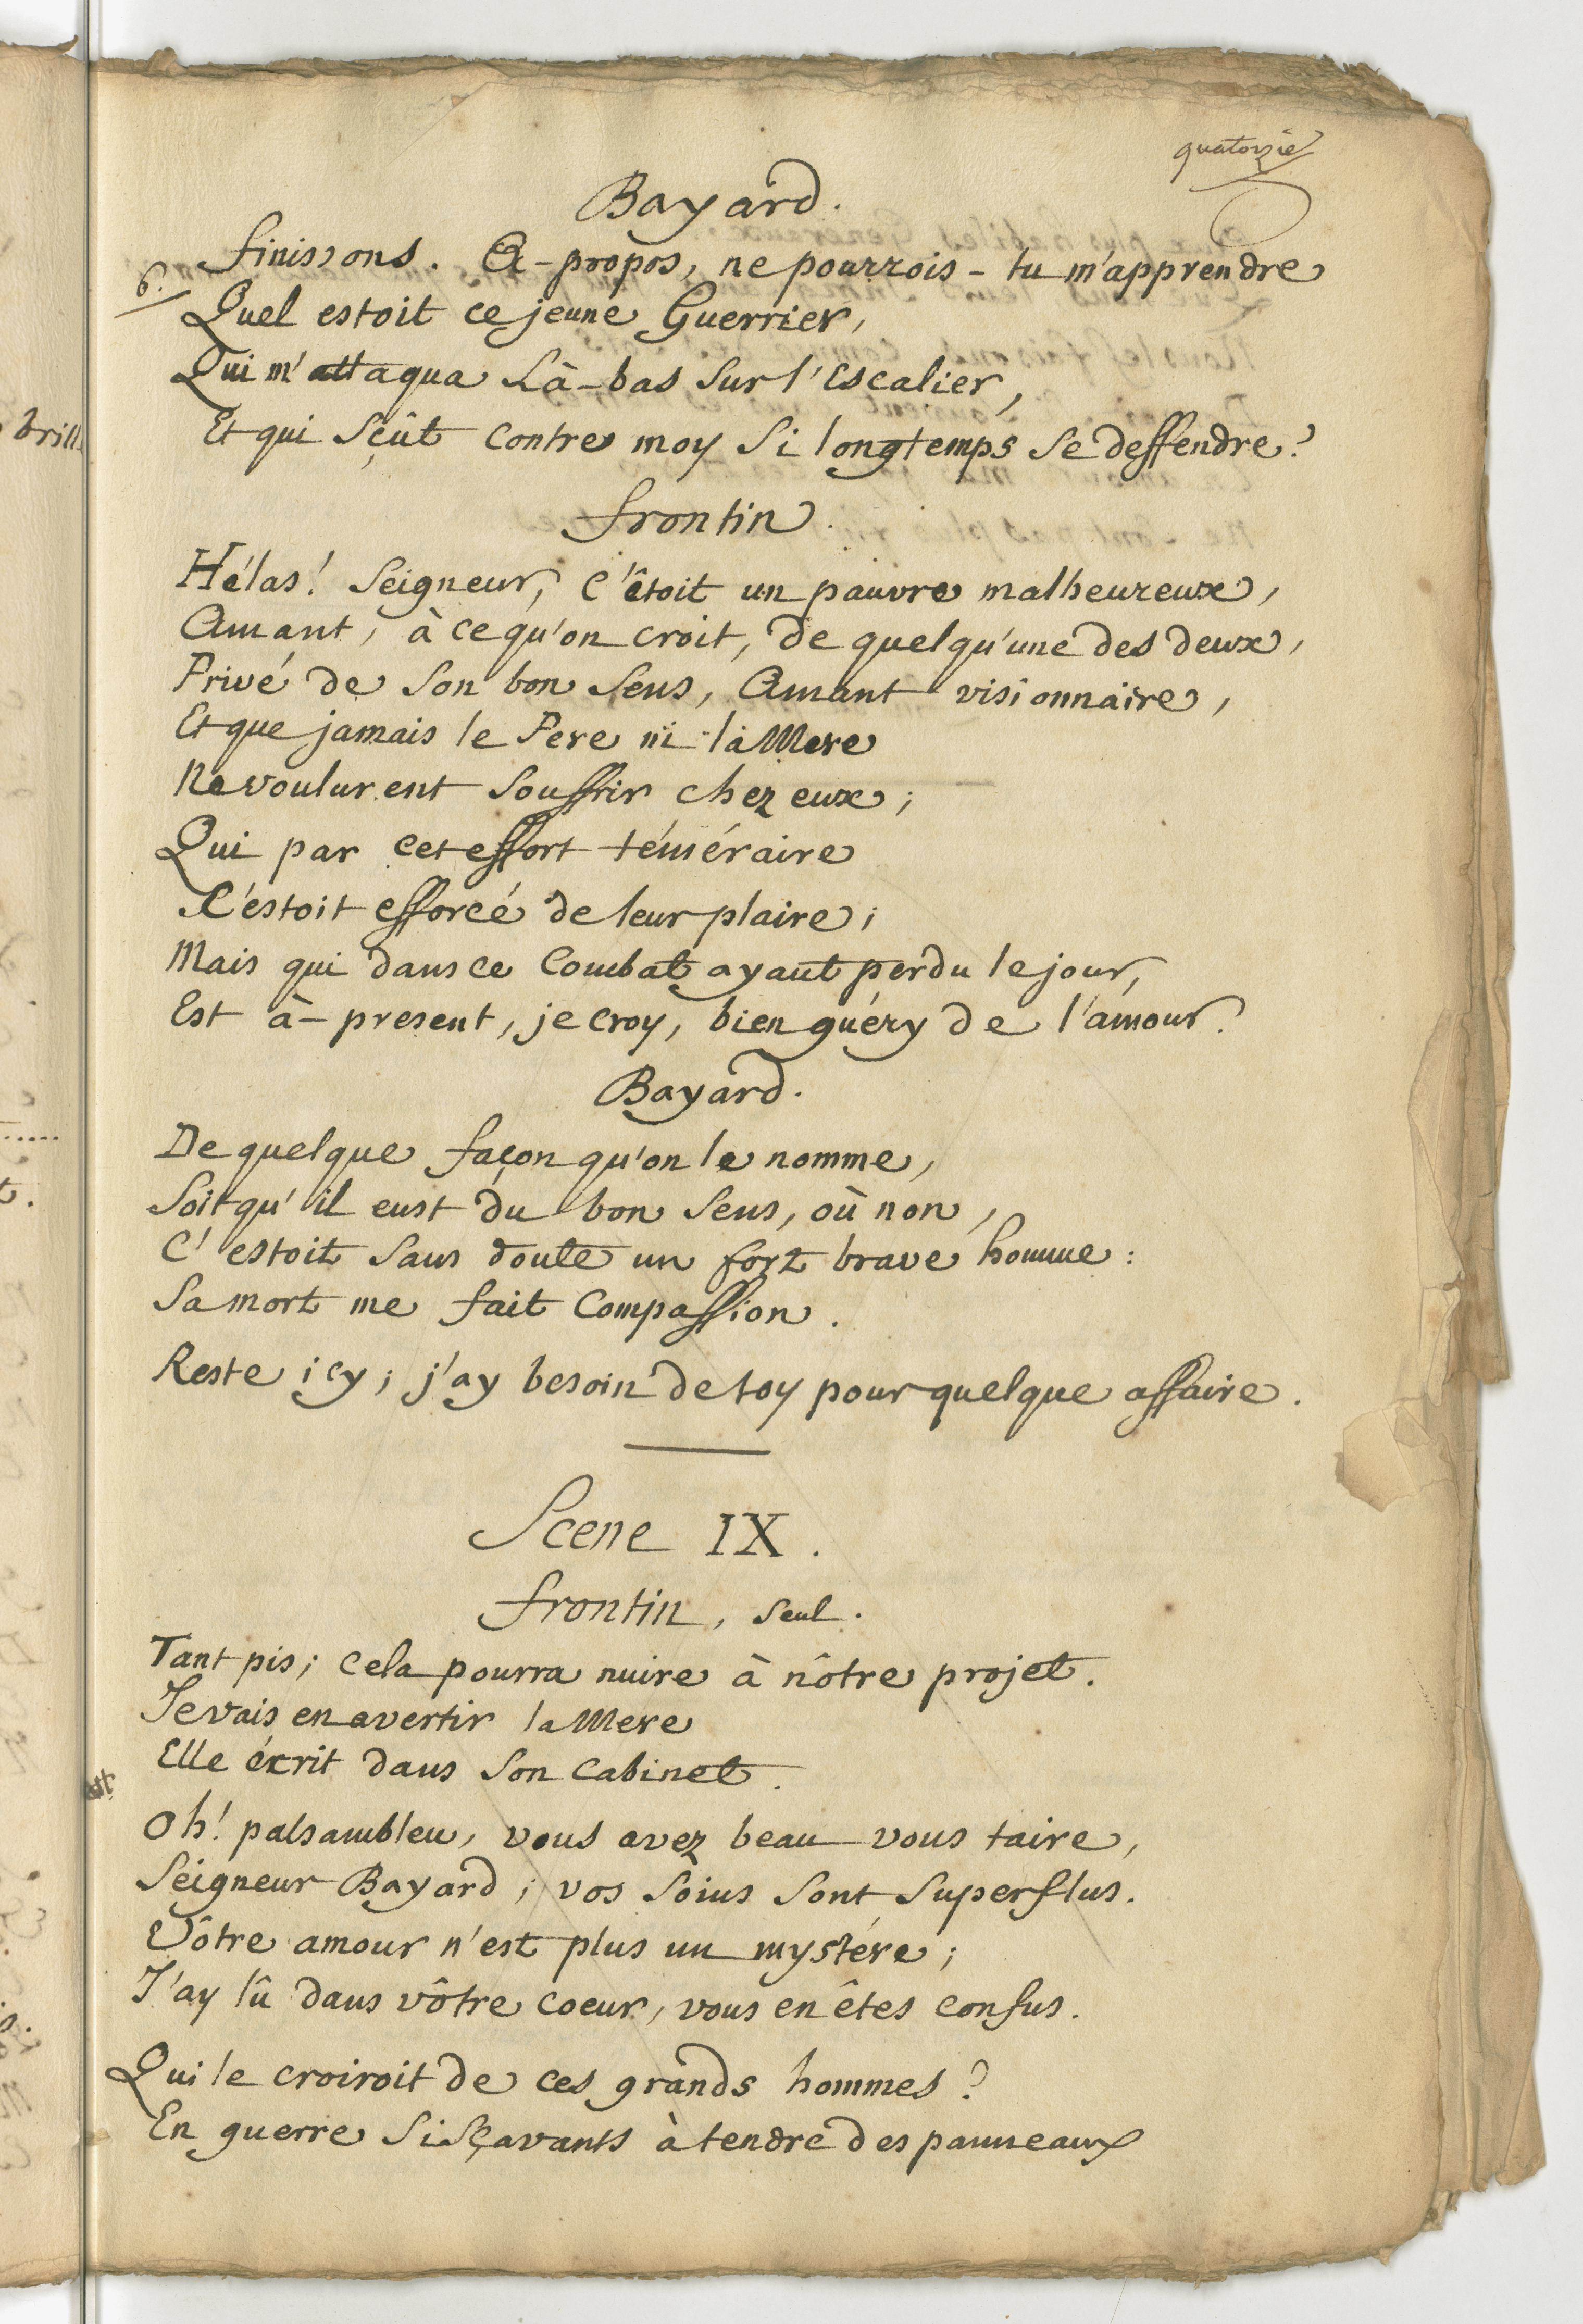 quatorzie
Bayard.
finissons. A-propos, ne pourrois-tu m'apprendre
6.
Quel estoit ce jeune Guerrier,
Qui m'attaqua Là-bas Sur l'Escalier,
Et qui Sçût contre moy Si longtemps Se deffendre?
frontin.
Hélas! Seigneur, C'êtoit un pauvre malheureux,
Amant, à ce qu'on croit, de quelqu'une des deux,
Privé de Son bon Sens, Amant visionnaire,
Et que jamais le Pere ni la Mere
Ne voulurent Souffrir chez eux;
Qui par cet effort téméraire
S'estoit efforcé de leur plaire;
Mais qui dans ce Combat ayant perdu le jour,
Est à-present, je croy, bien guéry de l'amour.
Bayard.
De quelque façon qu'on le nomme,
Soit qu'il eust du bon Sens, où non,
C'estoit Sans doute un fort brave homme:
Sa mort me fait Compassion.
Reste icy; j'ay besoin de toy pour quelque affaire.
Scene IX.
frontin, Seul.
Tant pis; cela pourra nuire à nôtre projet.
Je vais en avertir la Mere
Elle écrit dans Son Cabinet.
Oh! palsambleu, vous avez beau vous taire,
Seigneur Bayard; vos Soins Sont Superflus.
Vôtre amour n'est plus un mystére;
J'ay lû dans vôtre coeur, vous en êtes confus.
Qui le croiroit de ces grands hommes?
En guerre Si Sçavants à tendre des panneaux
brill